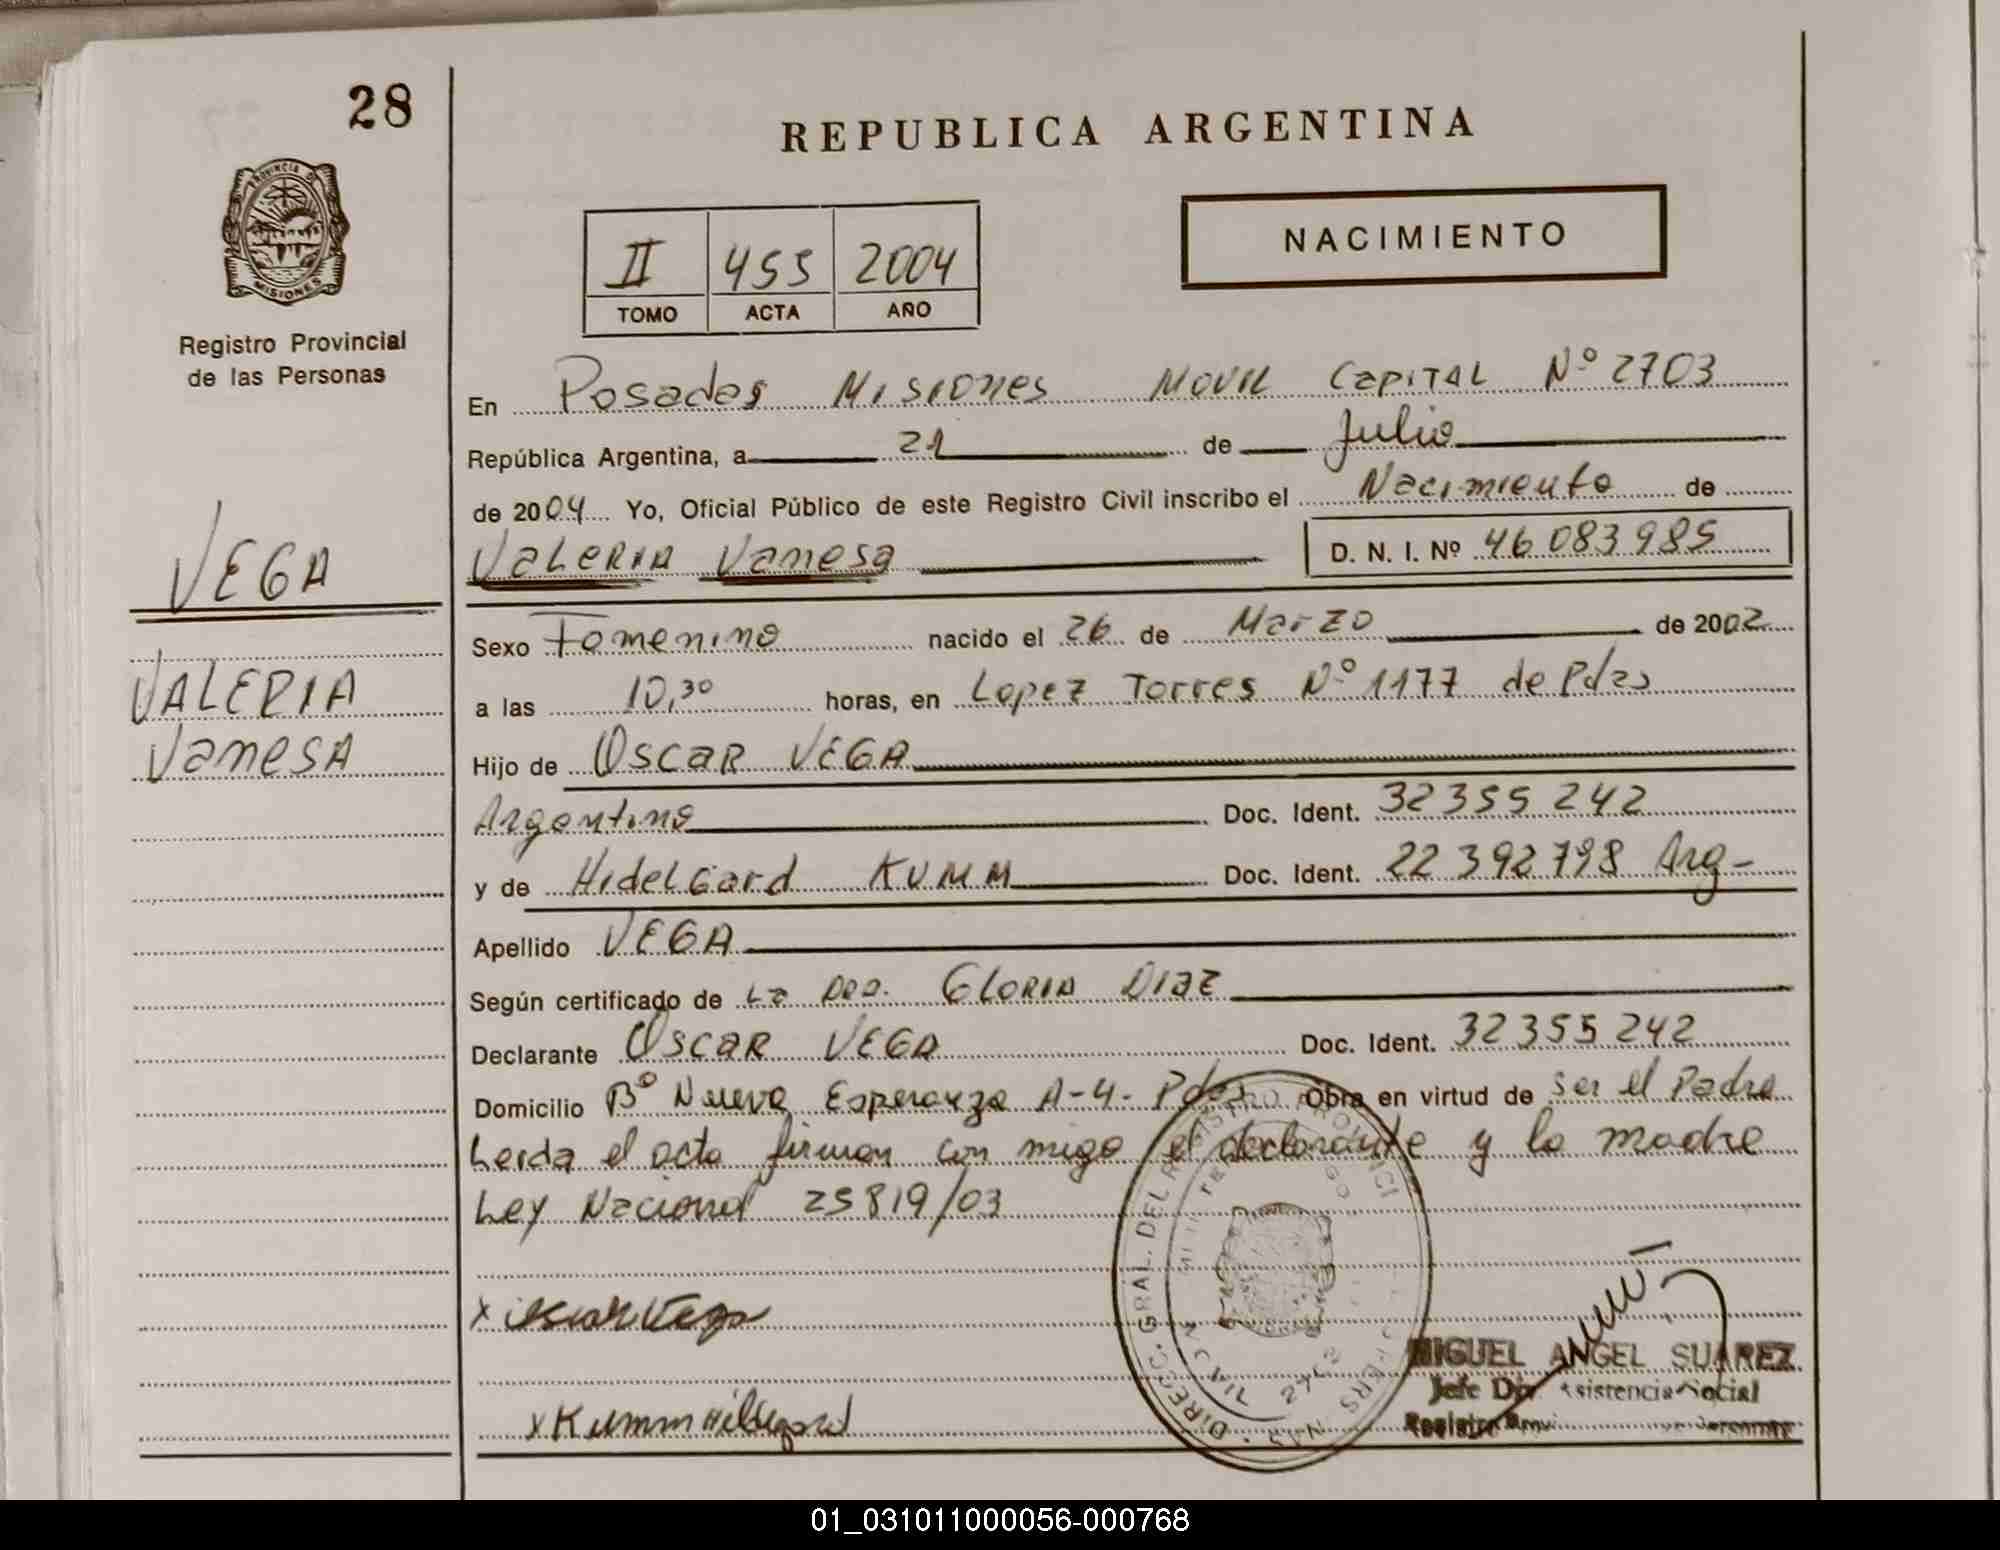 28
REPUBLICA ARGENTINA
PROVINCIA DE
MISIONES
NACIMIENTO
II 455 2004
TOMO ACTA AÑO
Registro Provincial
de las Personas
En Posadas Misiones Movil Capital Nº 2703
República Argentina, a 21 de Julio
de 2004 Yo, Oficial Público de este Registro Civil inscribo el Nacimiento de
VALERIA Vanesa D. N. I. Nº 46 083 985
VEGA
VALERIA
VanesA
Sexo Femenino nacido el 26 de Marzo de 2002
a las 10,30 horas, en Lopez Torres Nº 1177 de Pdas
Hijo de Oscar VEGA
Argentino Doc. Ident. 32 355 242
y de HidelGard KUMM Doc. Ident. 22 392 798 Arg-
Apellido VEGA
Según certificado de La Dra. GLORIA DIAZ
Declarante Oscar VEGA Doc. Ident. 32 355 242
Domicilio Bº Nueva Esperanza A-4- Pdas Obra en virtud de ser el Padre
Leida el acta firman con migo el declarante y la madre
Ley Nacional 25819/03
x Oscar Vega
x Kumm Hildegard
DIRECC. GRAL. DEL REGISTRO PROVINCI
MIGUEL ANGEL SUAREZ
Jefe Dpt. Asistencia Social
01_031011000056-000768